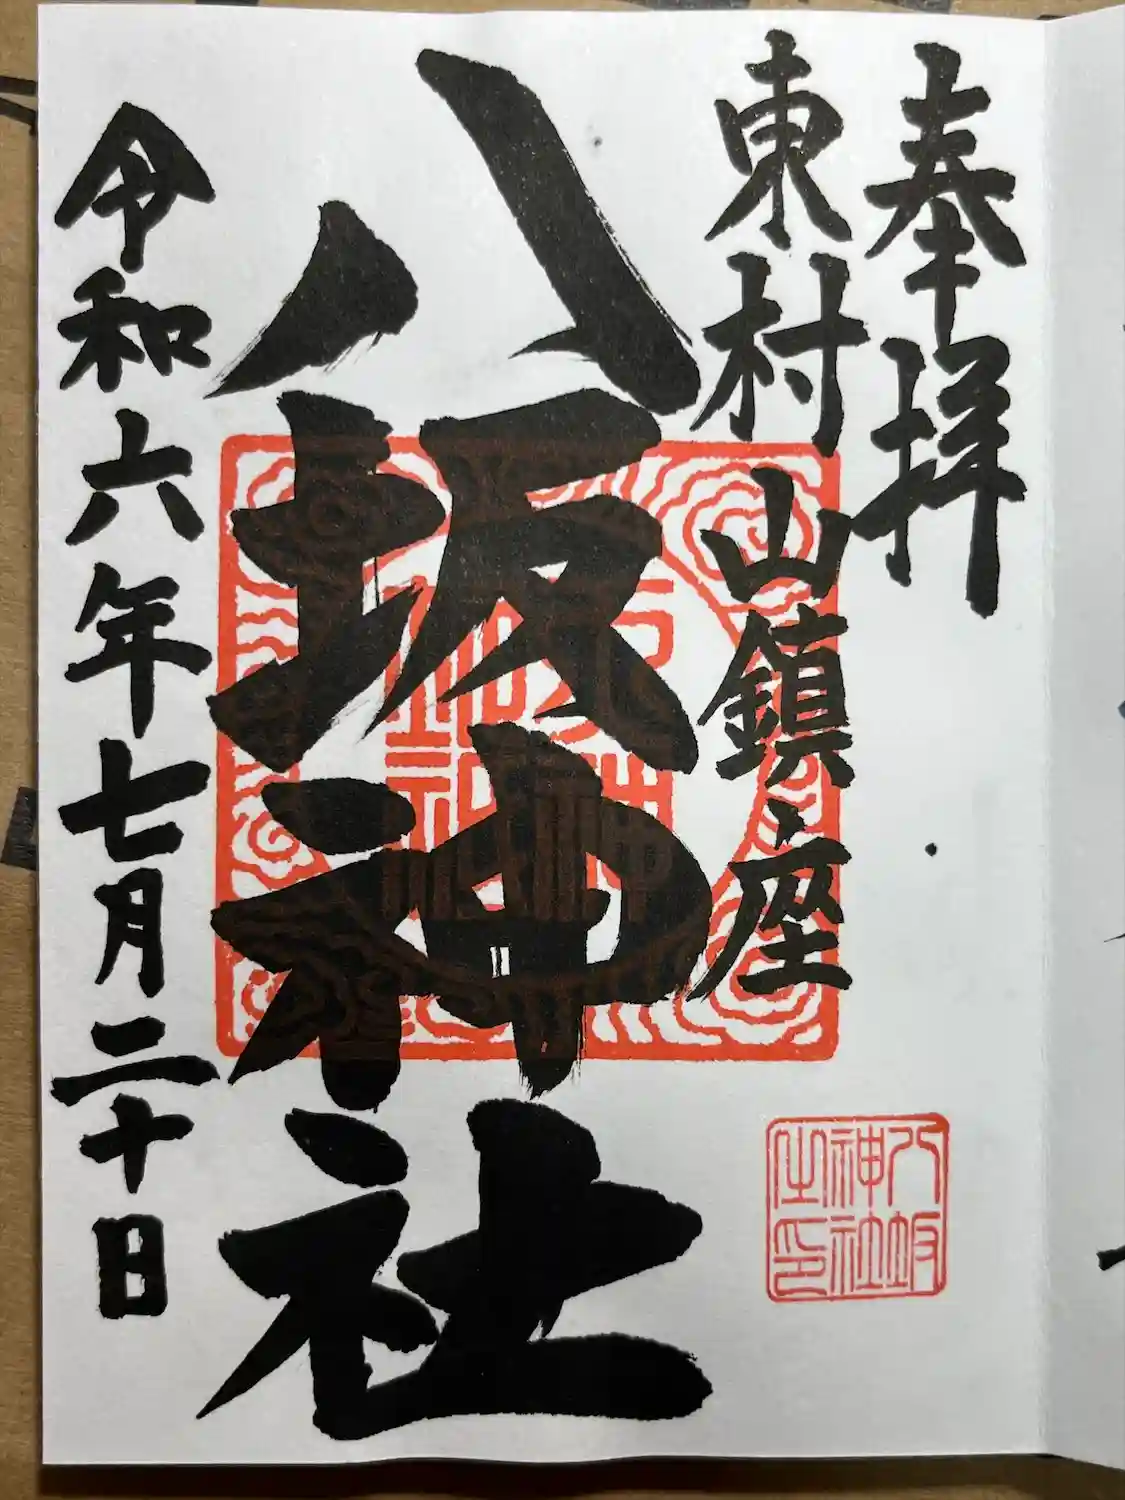 奉拝
東村山鎮座
八坂神社
令和六年七月二十日
八坂
神社
之印